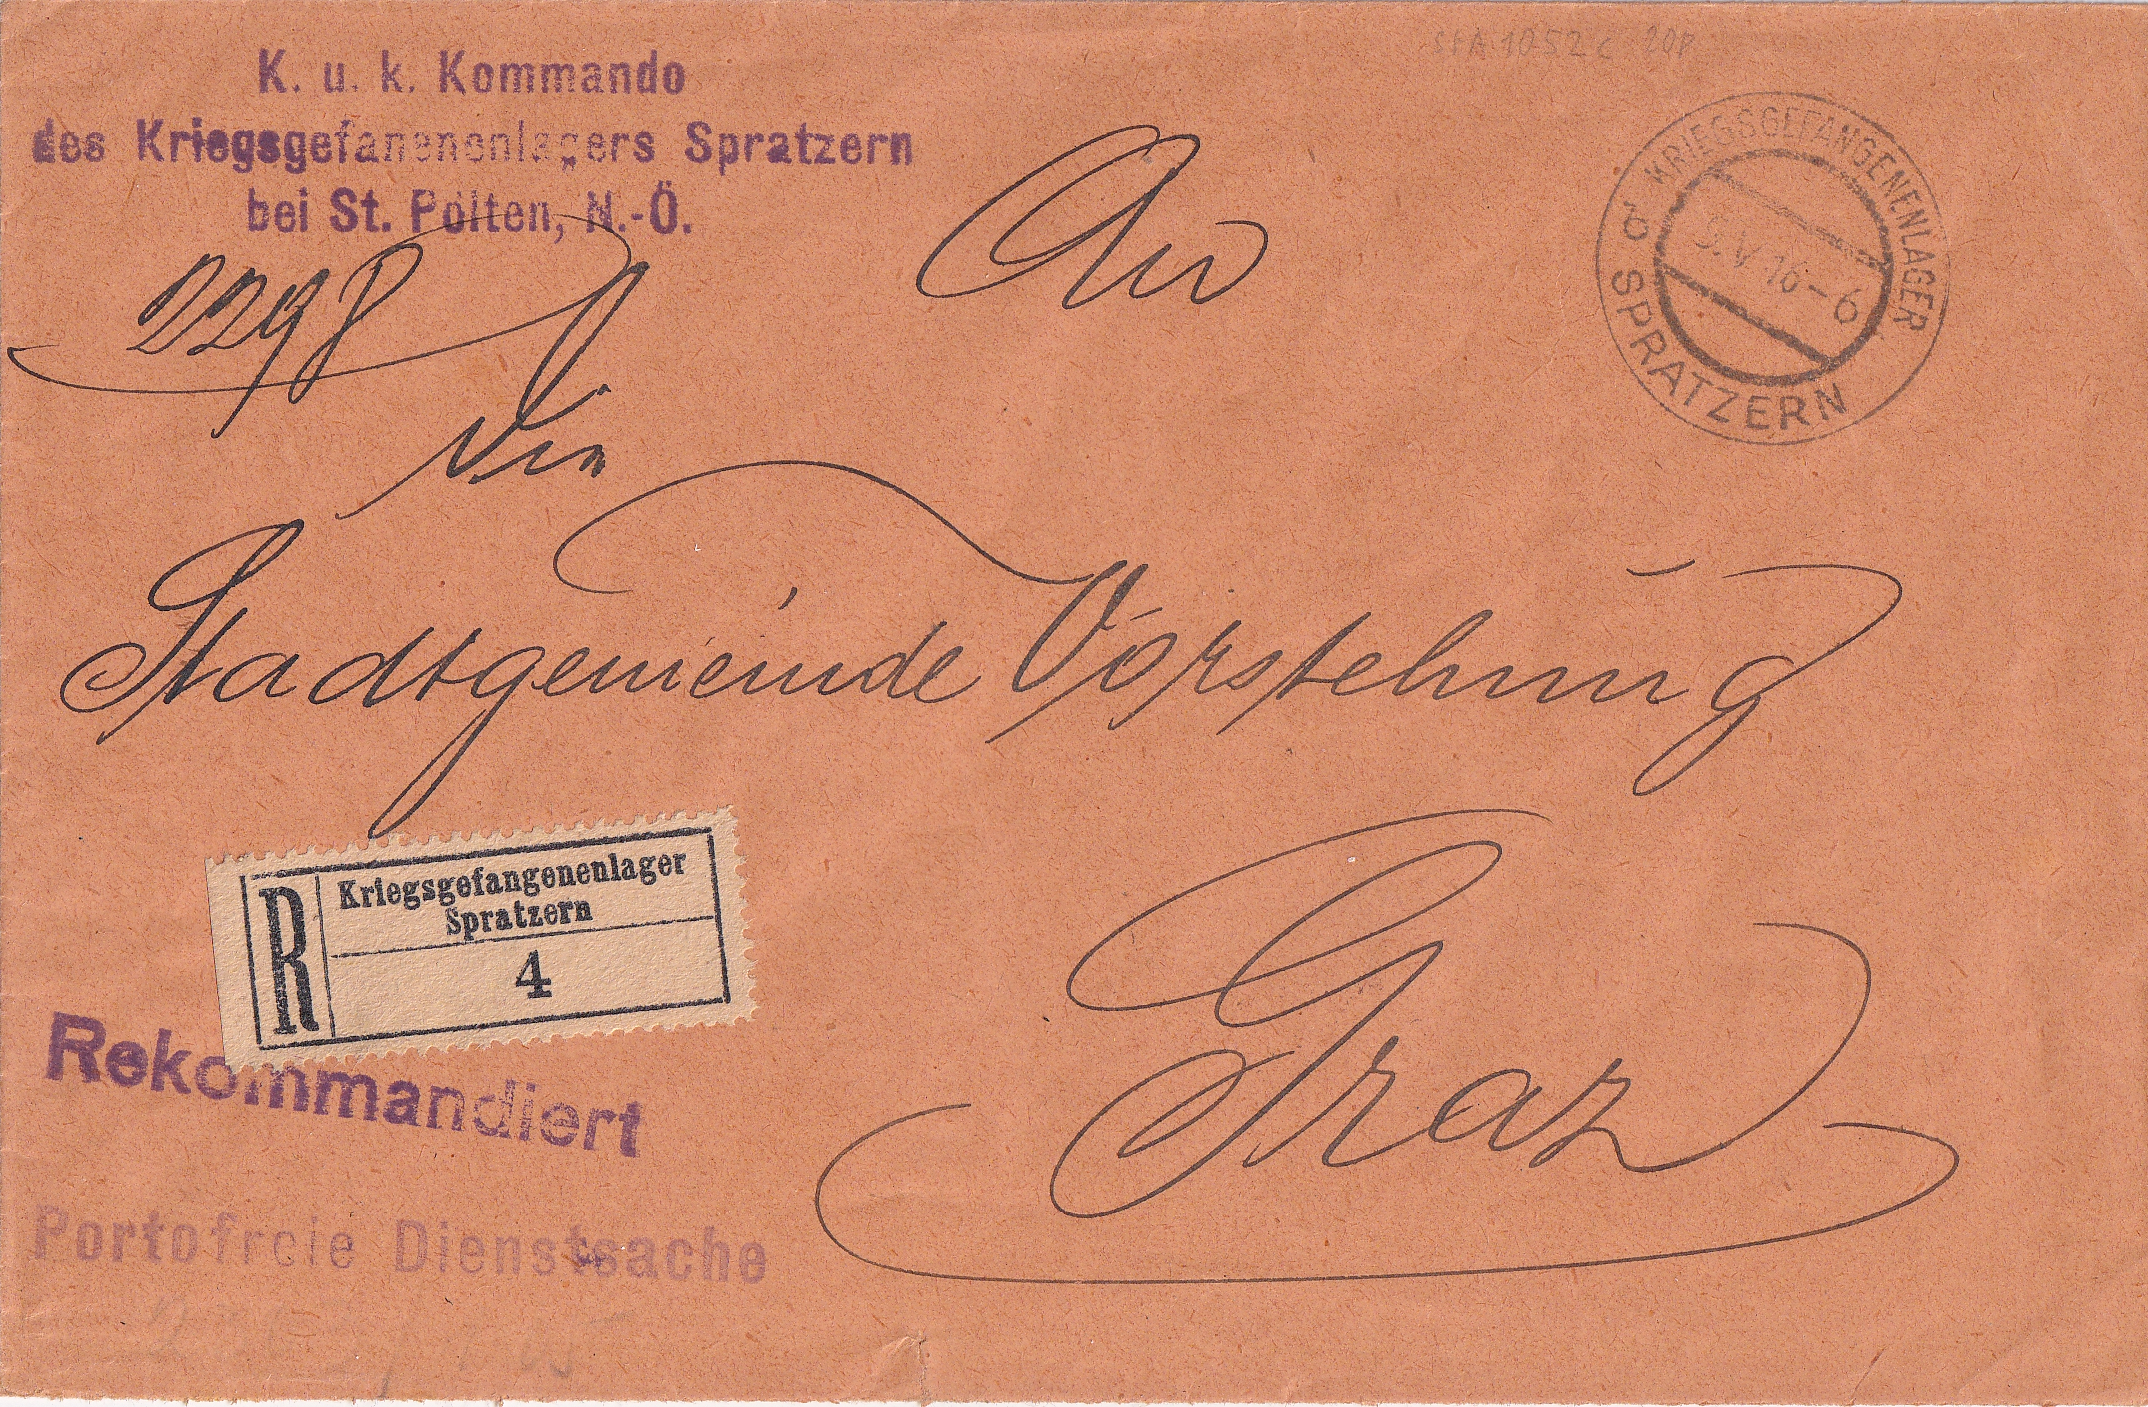 K. u. k. Kommando
des Kriegsgefangenenlagers Spratzern
bei St. Pölten, N.-Ö.
KRIEGSGEFANGENENLAGER
SPRATZERN
V 16-6
An
die
Stadtgemeinde Vorstehung
Graz
R
Kriegsgefangenenlager
Spratzern
4
Rekommandiert
Portofreie Dienstsache